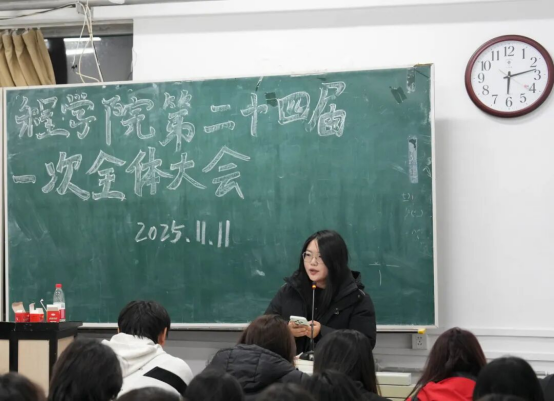 程学院第二十四届
一次全体大会
2025.11.11
12
1
2
3
4
5
6
7
8
9
10
11